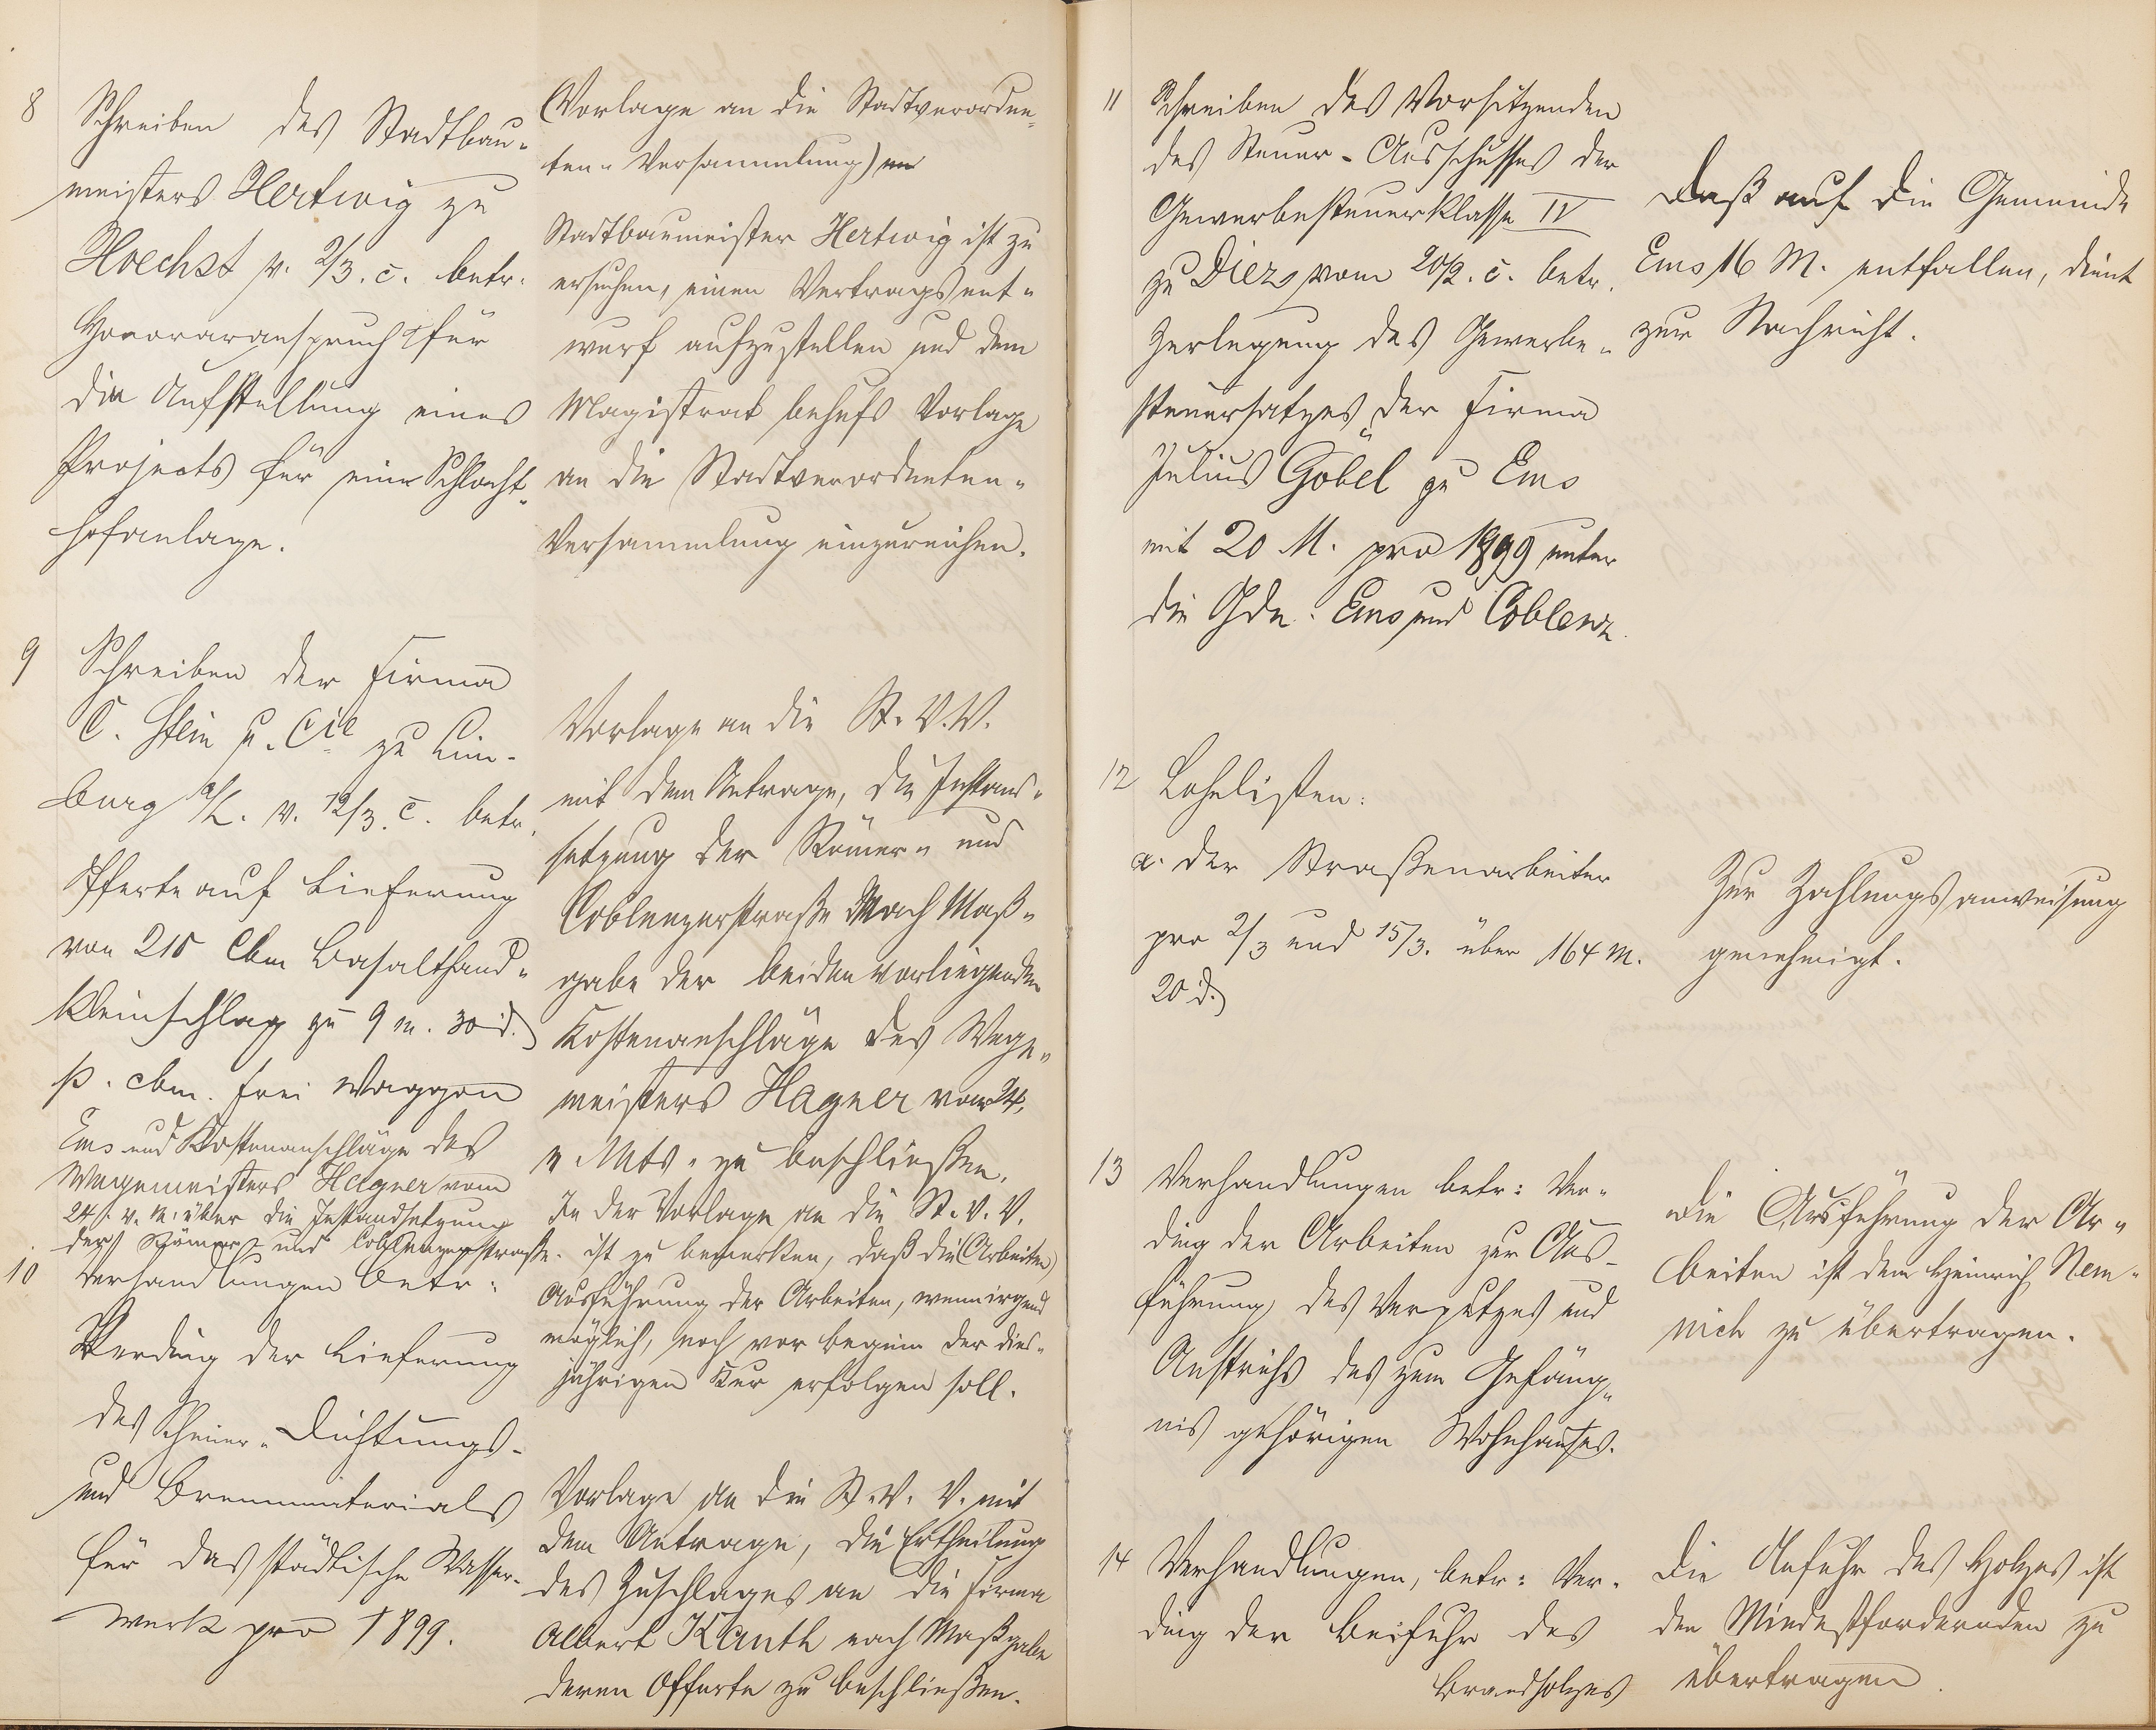 8
Schreiben des Stadtbau-
meisters Hertwig zu
Hoechst v. 2/3. c. betr.
Honoraranspruch für
die Aufstellung eines
Projects für eine Schlacht-
hofanlage.
(Vorlage an die Stadtverordne-
ten-Versammlung)
Stadtbaumeister Hertwig ist zu
ersuchen, einen Vertragsent-
wurf aufzustellen und dem
Magistrat behufs Vorlage
an die Stadtverordneten-
Versammlung einzureichen.
9
Schreiben der Firma
C. Stein u. Cie zu Lim-
burg a/L. v. 12/3. c. betr.
Offerte auf Lieferung
von 210 Cbm Basalthand-
kleinschlag zu 9 M. 30 d.
p. cbm. frei Waggon
Ems und Kostenanschläge des
Wegemeisters Hagner vom
24. v. M. über die Instandsetzung
der Römer- und Coblenzerstraße.
Vorlage an die St. V. V.
mit dem Antrage, die Instand-
setzung der Römer- und
Coblenzerstraße nach Maß-
gabe der beiden vorliegenden
Kostenanschläge des Wege-
meisters Hagner vom 24.
v. Mts. zu beschließen.
In der Vorlage an die St. V. V.
ist zu bemerken, daß die (Arbeiten)
Ausführung der Arbeiten, wenn irgend
möglich, noch vor Beginn der dies-
jährigen Kur erfolgen soll.
10
Verhandlungen betr:
Verding der Lieferung
des Schmier-, Dichtungs-
und Brennmaterials
für das städtische Wasser-
werk pro 1899.
Vorlage an die St. V. V. mit
dem Antrage, die Ertheilung
des Zuschlages an die Firma
Albert Kauth nach Maßgabe
deren Offerte zu beschließen.
11
Schreiben des Vorsitzenden
des Steuer-Ausschusses der
Gewerbesteuerklasse IV
zu Diez vom 20/2. c. betr.
Zerlegung des Gewerbe-
steuersatzes der Firma
Julius Göbel zu Ems
mit 20 M. pro 1899 unter
die Gde. Ems und Coblenz.
Daß auf die Gemeinde
Ems 16 M. entfallen, dient
zur Nachricht.
12
Lohnlisten:
a. der Straßenarbeiter
pro 2/3 und 15/3. über 164 M.
20 d.
Zur Zahlungsanweisung
genehmigt.
13
Verhandlungen betr: Ver-
ding der Arbeiten zur Aus-
führung des Verputzes und
Anstrichs des zum Gefäng-
nis gehörigen Wohnhauses.
Die Ausführung der Ar-
beiten ist dem Heinrich Nem-
nich zu übertragen.
14
Verhandlungen, betr: Ver-
ding der Beifuhr des
Brandholzes
Die Anfuhr des Holzes ist
den Mindestfordernden zu
übertragen.